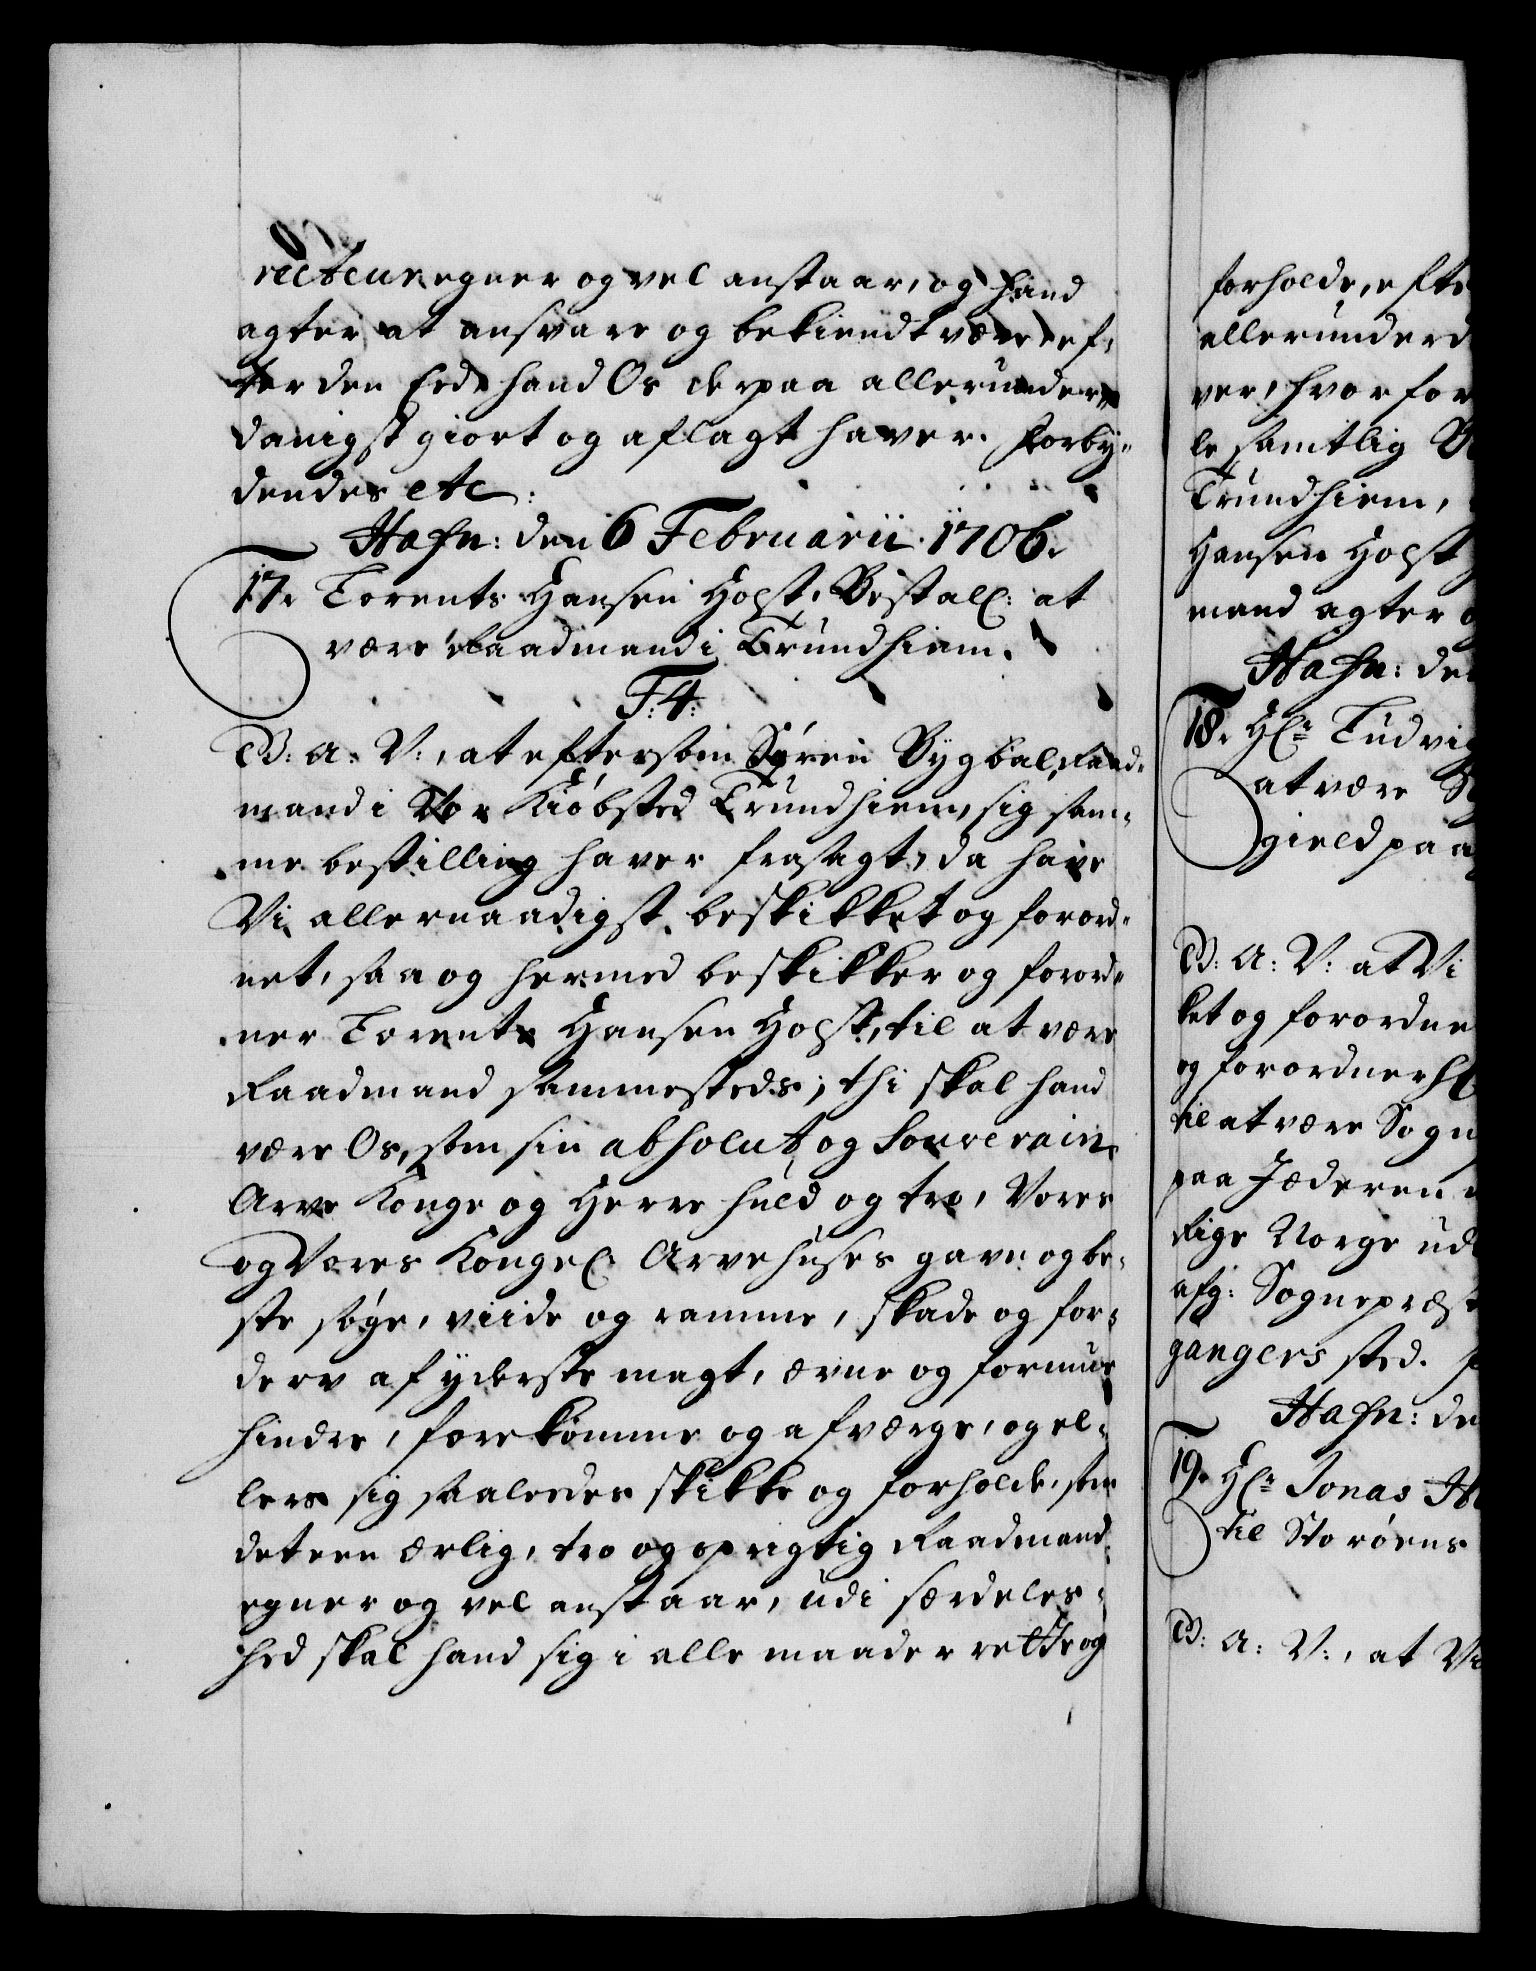 recteur egner og vel anstaar, og hand
agter at ansvare og bekiendt være, ef-
ter den Eed hand Os derpaa allerunder-
danigst giort og aflagt haver. Forby-
dendes etc:
Hafn: den 6 Februarii 1706.
17. Lorents Hansen Holst, Bestall: at
være Raadmand i Trundhiem.
F: 4:
G: A: V:, at eftersom Søren Bygbal, Raad-
mand i Vor Kiøbsted Trundhiem, sig sam-
me bestilling haver frasagt, da have
Vi allernaadigst beskikket og forord-
net, saa og hermed beskikker og forord-
ner Lorents Hansen Holst, til at være
Raadmand sammesteds; thi skal hand
være Os, som sin absolut og Souverain
Arve Konge og Herre huld og tro, Vores
og Vores Kongel: Arvehuses gavn og be-
ste søge, viide og ramme, skade og for-
derv af yderste magt, ævne og formue
hindre, forekomme og afværge, og el-
lers sig saaledes skikke og forholde, som
det een ærlig, tro og oprigtig Raadmand
egner og vel anstaar, udi særdeles-
hed skal hand sig i alle maader rette og
forholde, efte
allerunderd
ver, hvorfor
le samtlig
Trundhiem,
Hansen Holst
mand agter
Hafn: de
18. Hr: Ludvig
at være
gield paa
G: A: V: at Vi
ket og forordne
og forordner Hr
til at være Sogn
paa Jæderen
Rige Norge ud
afg: Sognepræst
gangers sted.
Hafn: de
19. Hr: Jonas
til Storøens
G: A: V:, at Vi